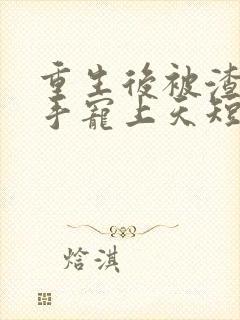 重生後被渣
手寵上天短
焓淇